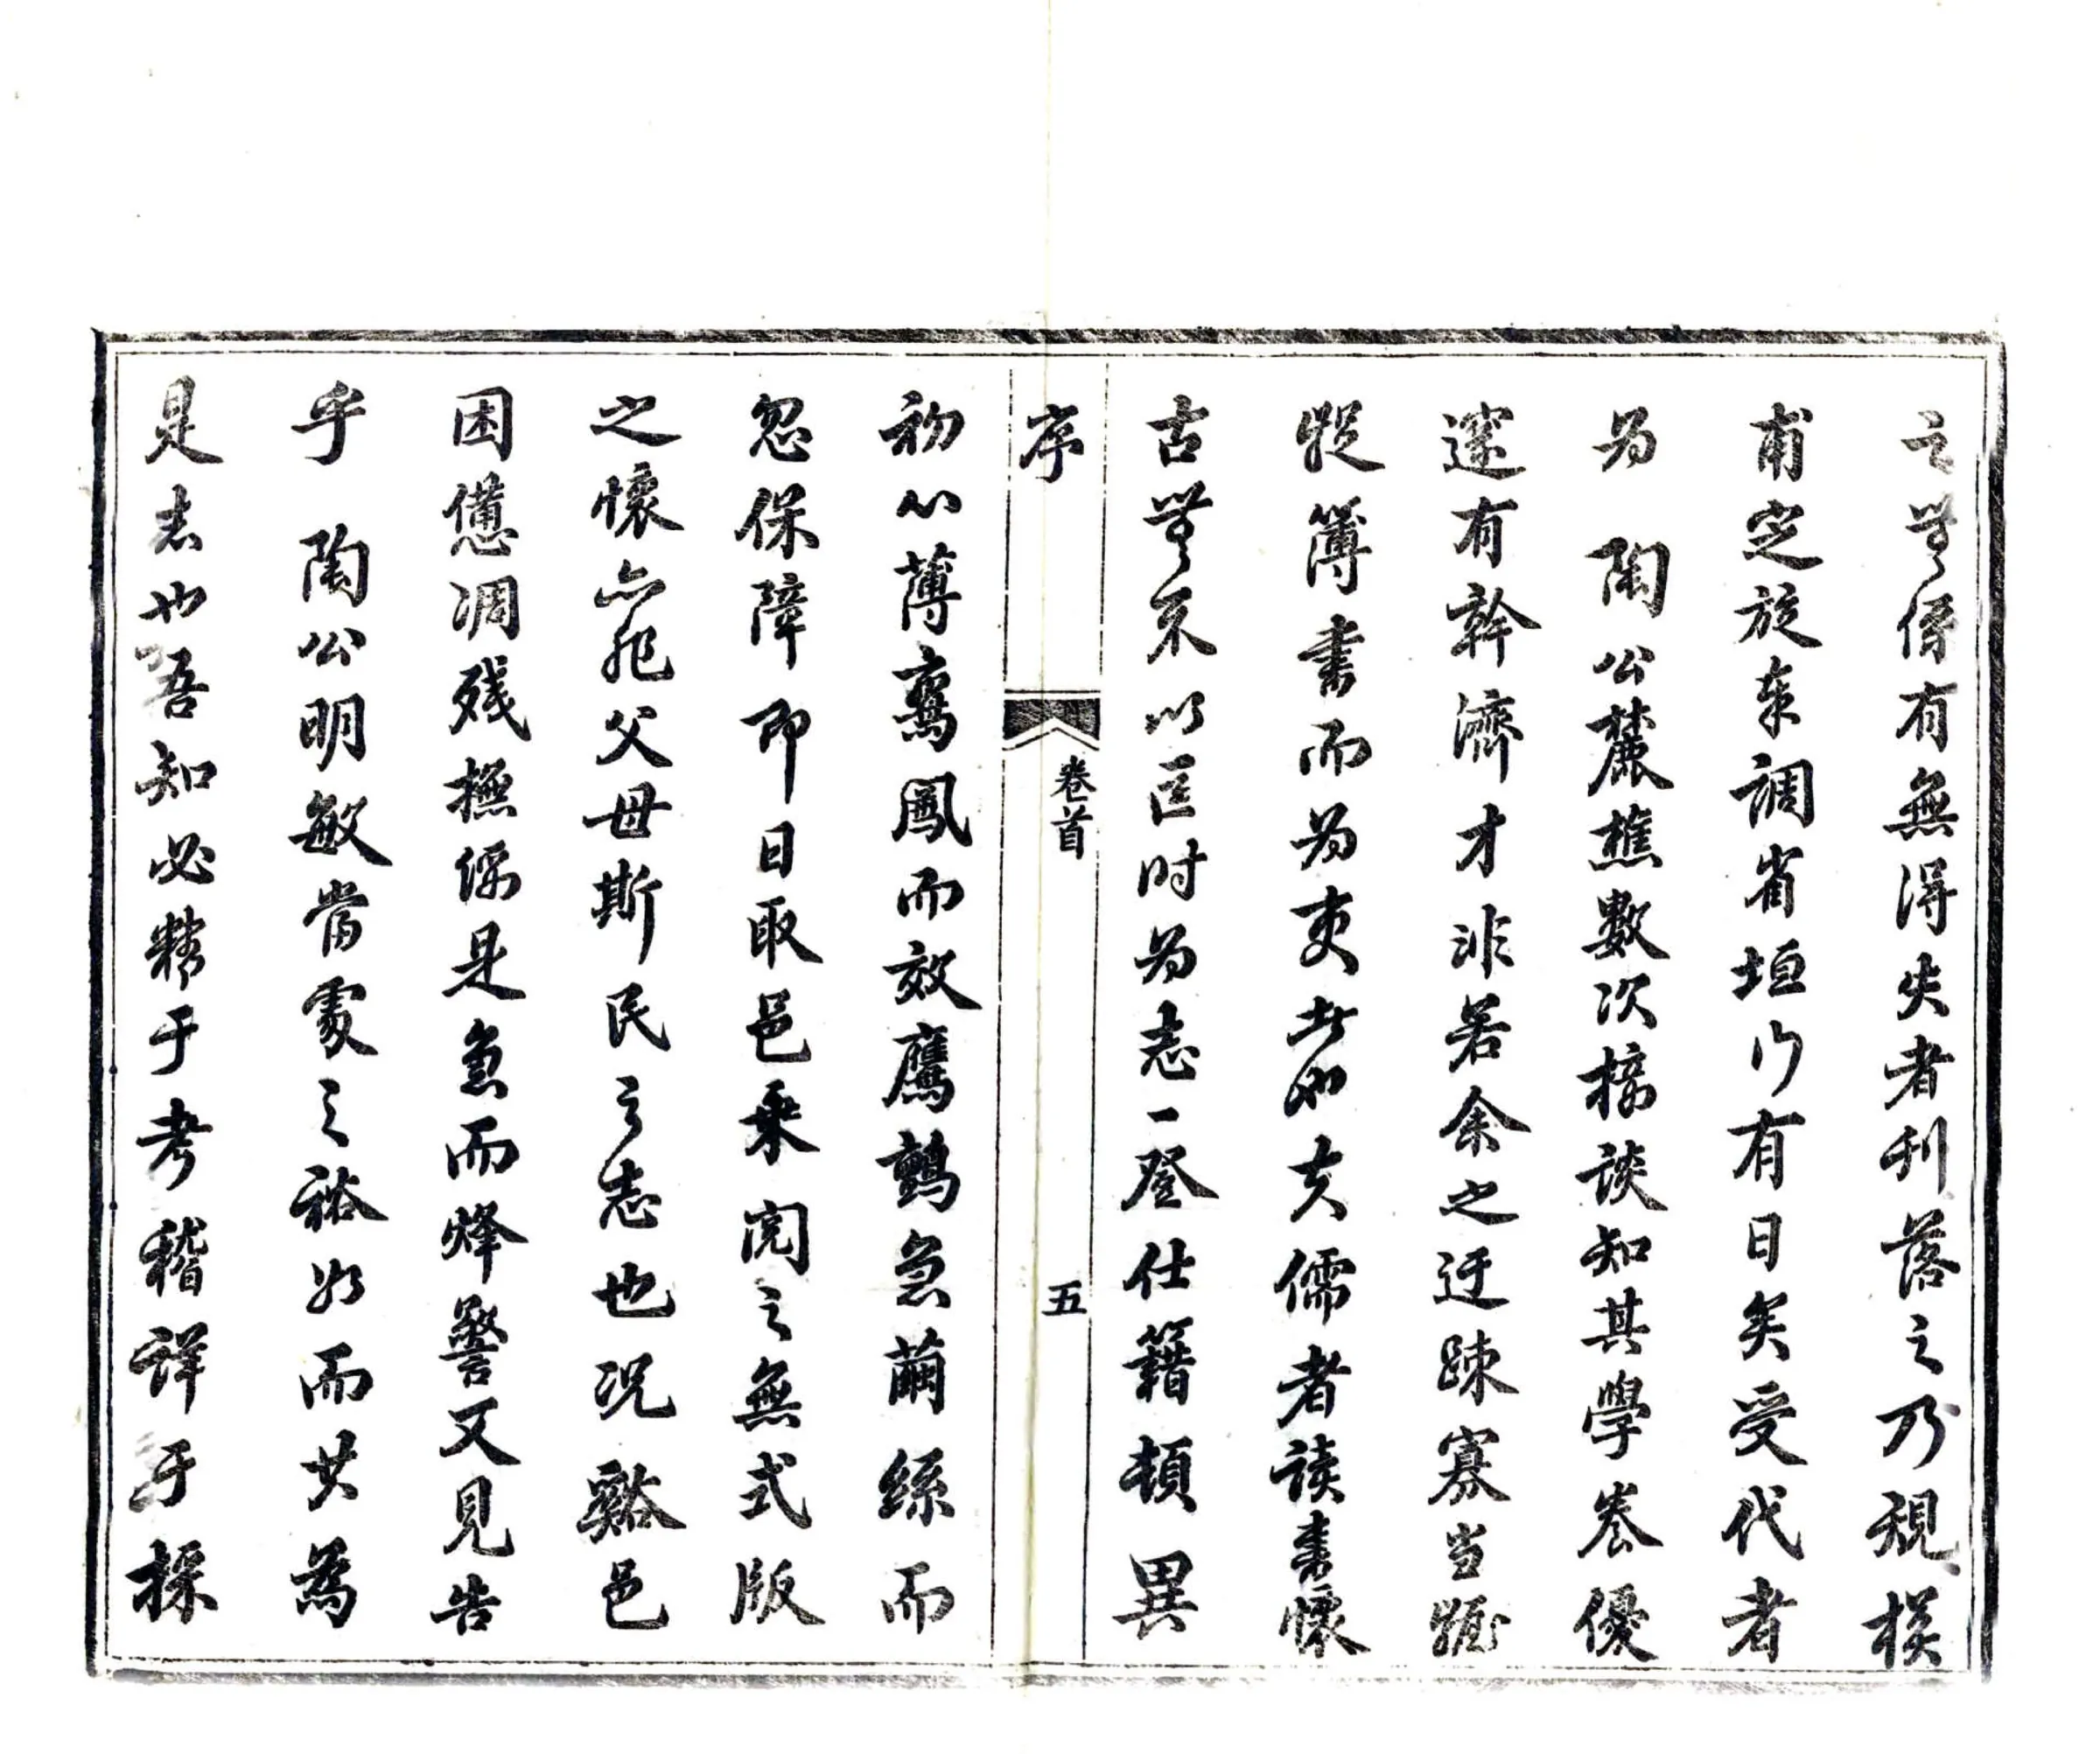 之無傳有無得失者刊落之乃規模
甫定旋奉調省垣行有日矣受代者
为 陶公麓樵數次接談知其學養優
邃有幹濟才非若余之迂踈寡当龌
龊簿書而为吏者也夫儒者读書懷
古無不以匡时为志一登仕籍頓異
序 卷首 五
初心薄鸞鳳而效鷹鸇急繭絲而
忽保障即日取邑乘閱之無式版
之懷亦非父母斯民之志也况谿邑
困憊凋残撫绥是急而烽警又見告
乎 陶公明敏當處之裕如而其為
是志也吾知必精于考稽詳于採